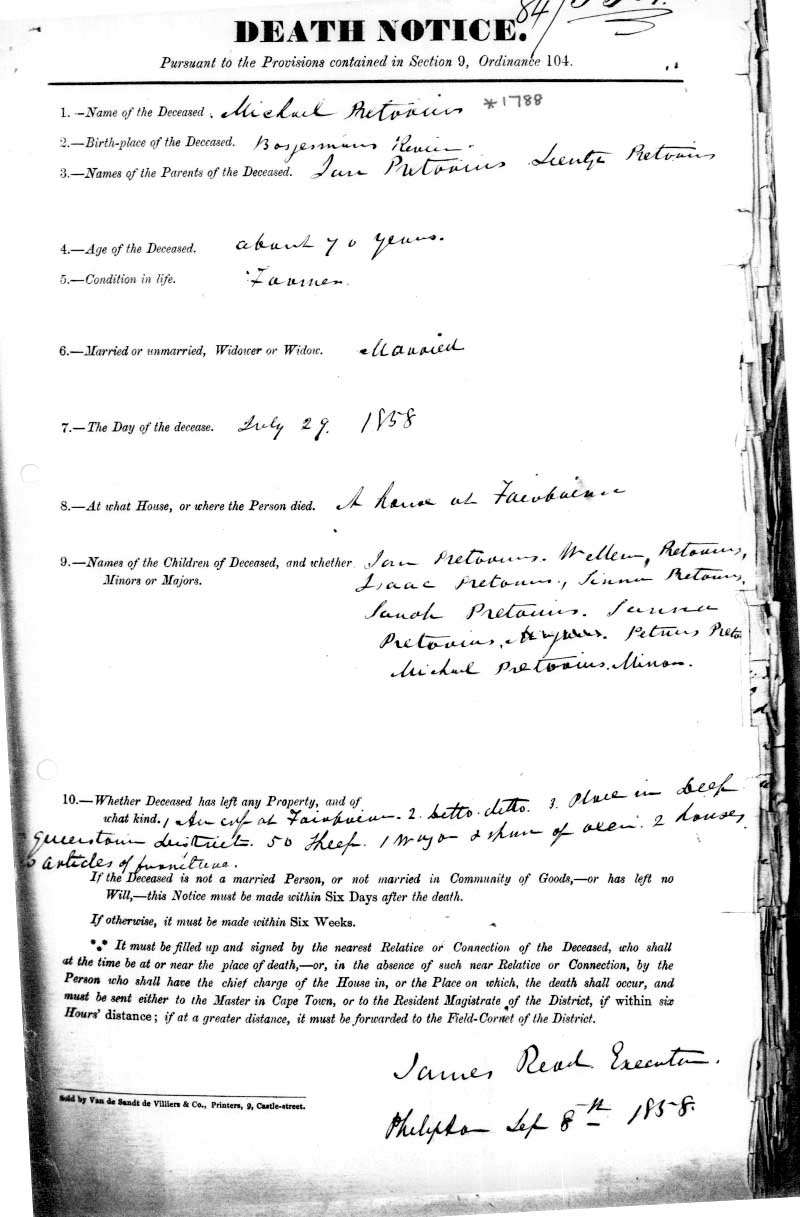 84/
DEATH NOTICE.
Pursuant to the Provisions contained in Section 9, Ordinance 104.
1.—Name of the Deceased. Michael Pretorius *1788
2.—Birth-place of the Deceased. Bosjesmans Revier.
3.—Names of the Parents of the Deceased. Jan Pretorius Pretorius
4.—Age of the Deceased. about 70 years.
5.—Condition in life. Farmer
6.—Married or unmarried, Widower or Widow. Married
7.—The Day of the decease. July 29. 1858
8.—At what House, or where the Person died. A house at Fairbairn
9.—Names of the Children of Deceased, and whether Jan Pretorius. Willem Pretorius,
Minors or Majors. Isaac Pretorius, Pretorius,
Sarah Pretorius. Sanna
Pretorius, Petrus Preto
Michael Pretorius. Minor.
10.—Whether Deceased has left any Property, and of
what kind. 1 An erf at Fairbairn. 2. Ditto ditto. 3. Place in Deep
Queenstown District. 50 Sheep. 1 Wagon & span of oxen. 2 houses
articles of furniture.
If the Deceased is not a married Person, or not married in Community of Goods,—or has left no
Will,—this Notice must be made within Six Days after the death.
If otherwise, it must be made within Six Weeks.
*** It must be filled up and signed by the nearest Relative or Connection of the Deceased, who shall
at the time be at or near the place of death,—or, in the absence of such near Relative or Connection, by the
Person who shall have the chief charge of the House in, or the Place on which, the death shall occur, and
must be sent either to the Master in Cape Town, or to the Resident Magistrate of the District, if within six
Hours' distance; if at a greater distance, it must be forwarded to the Field-Cornet of the District.
James Read Executor.
Sold by Van de Sandt de Villiers & Co., Printers, 9, Castle-street.
Philipton Sep 8th 1858.